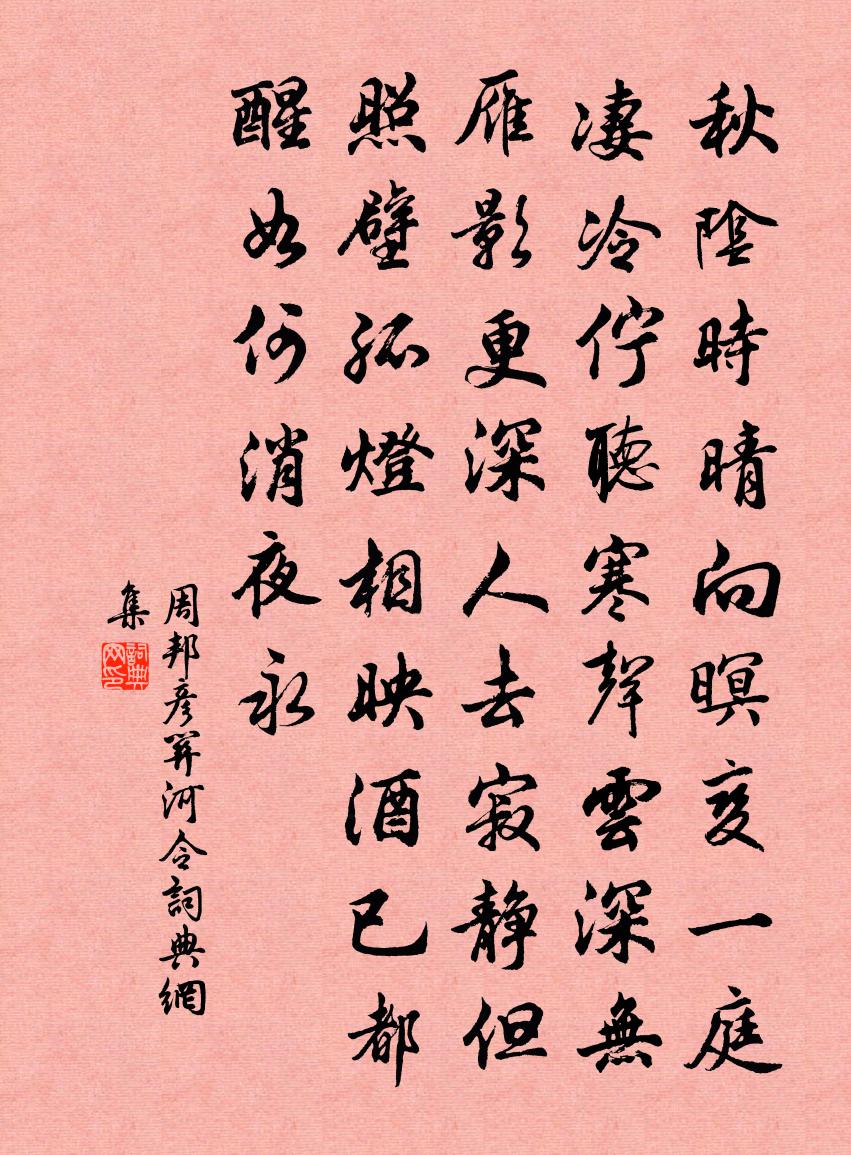 秋陰時晴向暝變一庭
凄冷佇聽寒聲雲深無
雁影更深人去寂靜但
照壁孤燈相映酒已都
醒如何消夜永
周邦彥關河令詞典網
集
詞典
网印